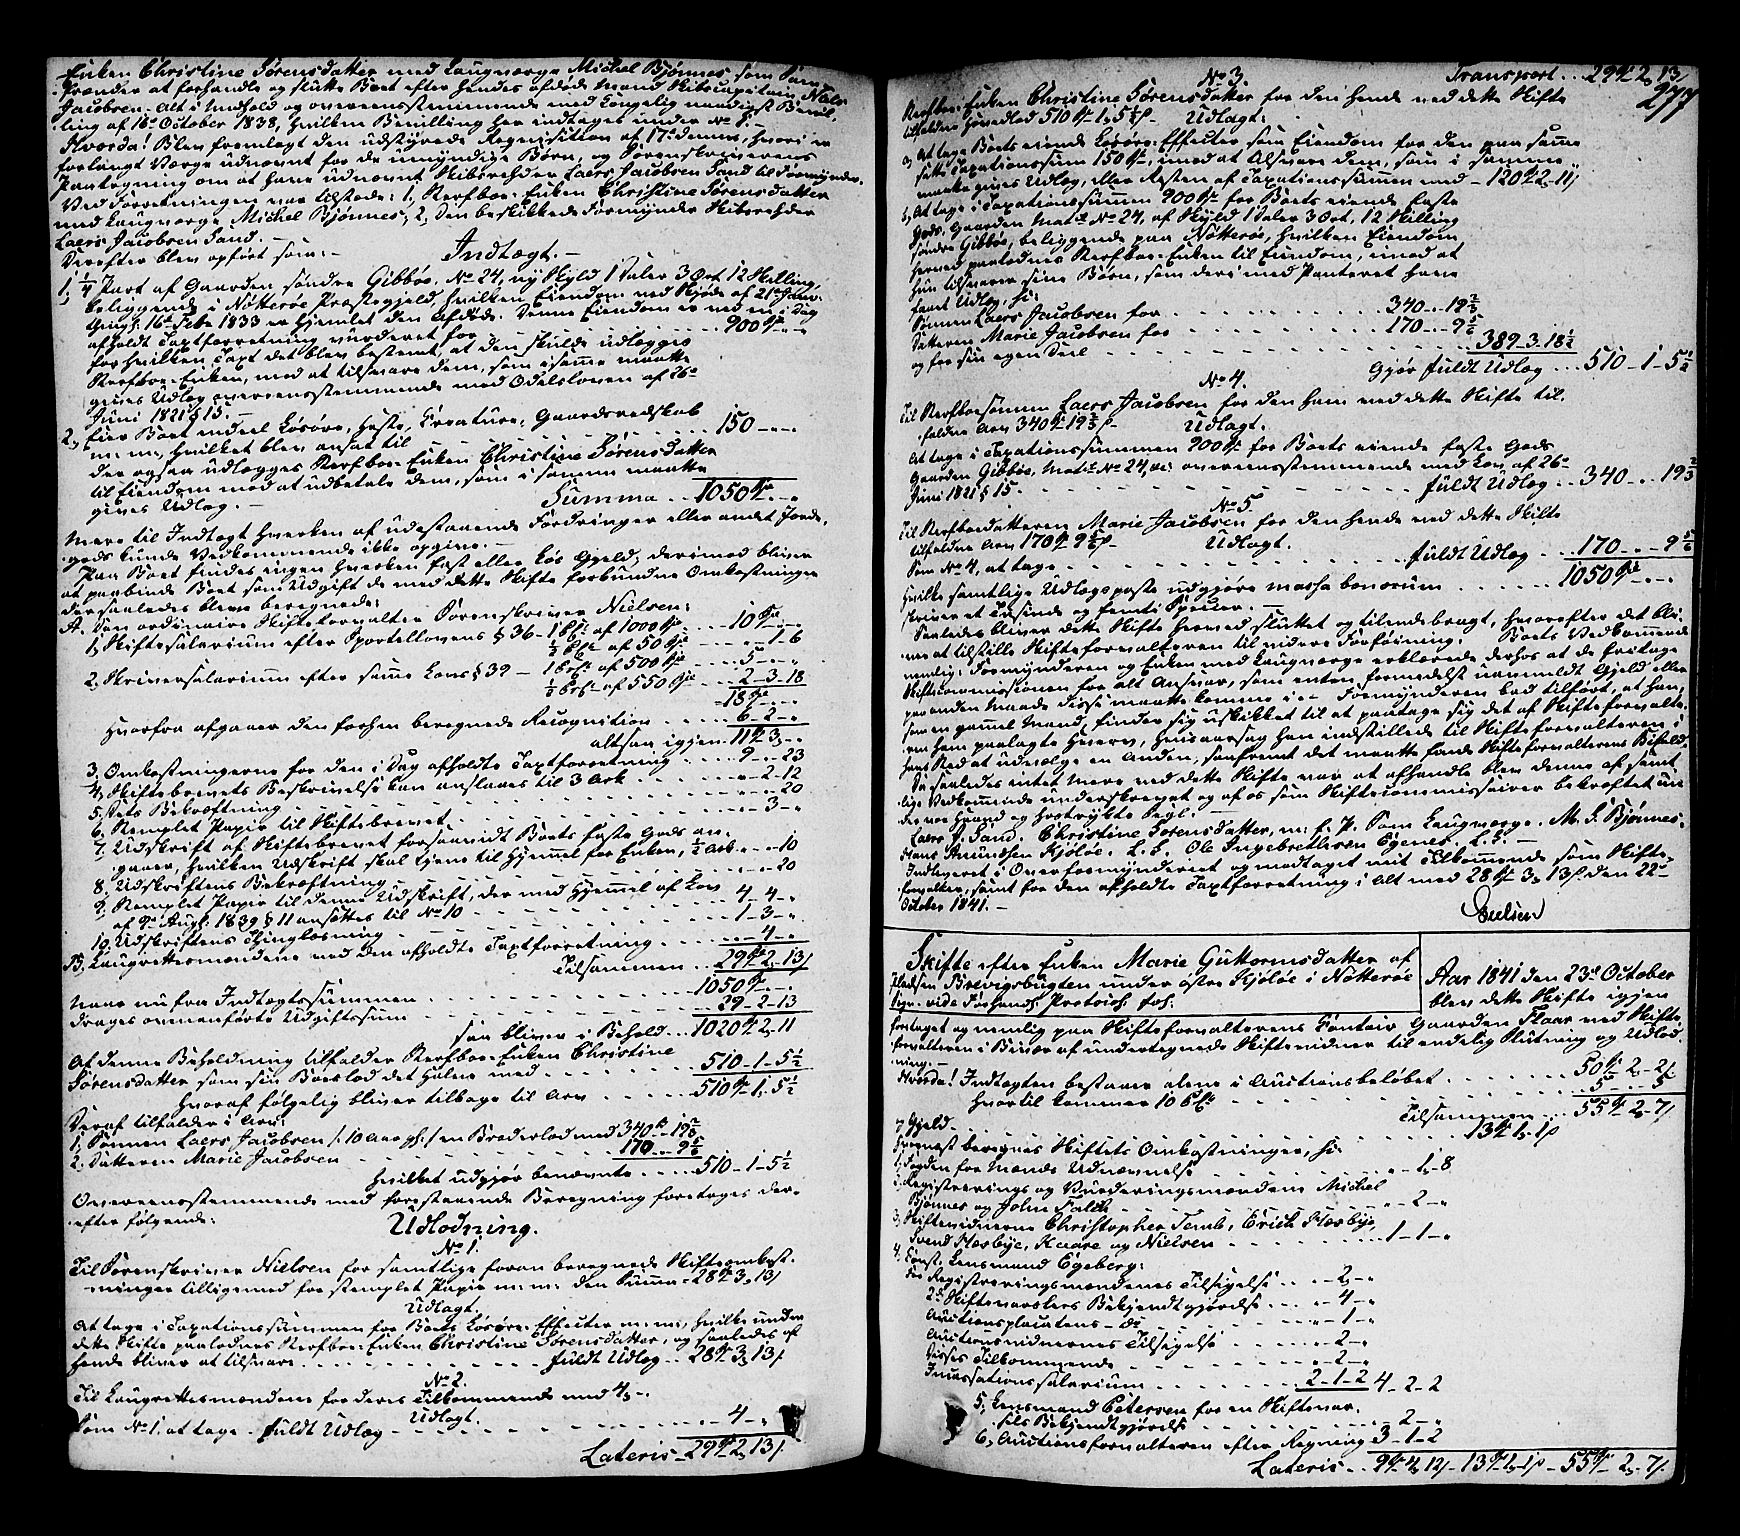 Enken Christine Sørensdatter med Laugværge Michel Bjønnes, som
at forhandle og slutte Boet efter hendes afdøde Mand Skibscapitain Niels
Jacobsen. Alt i Medhold og overeensstemmende med Kongelig naadigst Bevil-
ling af 16de October 1838, hvilken Bevilling her indtages under No 1.
Hvorda! Blev fremlagt den udstyrede Requisition af 17de dennes, hvori er
forlangt Værge udnævnt for de umyndige Børn, og Sorenskriverens
Paategning om at have udnævnt Skibsrehder Laers Jacobsen Sand til Formynder.
Ved Forretningen var tilstede: 1, Sterfboe-Enken Christine Sørensdatter
med Laugværge Michel Bjønnes, 2, Den beskikkede Formynder Skibsrehder
Laers Jacobsen Sand.
Derefter blev opført som:
Indtægt.
1, 1/4 Part af Gaarden søndre Gibbøe, No 24, ny Skyld 1 Daler 3 Ort 12 Skilling,
beliggende i Nøtterøe Præstegjeld, hvilken Eiendom ved Skjøde af 21de Janr
thingl. 16de Febr 1833 er hjemlet den Afdøde. Denne Eiendom er ved en i Dag
afholdt Taxtforretning vurderet for . . . 900 Spd
for hvilken Taxt det blev bestemt, at den skulde udlægges
Sterfboe-Enken, mod at tilsvare dem, som i samme maatte
gives Udlæg overeensstemmende med Odelsloven af 26de
Juni 1821 § 15.
2, Eier Boet endeel Løsøre, Heste, Creature, Gaardsredskab
m: m:, hvilket blev ansat til . . . 150 - - -
der ogsaa udlægges Sterfboe-Enken Christine Sørensdatter
til Eiendom mod at udbetale dem, som i samme maatte
gives Udlæg.
Summa . . 1050 Spd
Mere til Indtægt hverken af udestaaende Fordringer eller andet Jorde-
gods kunde Vedkommende ikke opgive.
Paa Boet findes ingen hverken fast eller løs Gjeld, derimod bliver
at paabinde Boet som Udgift de med dette Skifte forbundne Omkostninger
der saaledes bleve beregnede:
A. Den ordinaire Skifteforvalter Sorenskriver Nielsen:
1, Skiftesalarium efter Sportelloven § 36 - 1 pCt af 1000 Spd . . . 10 Spd
1/2 pCt af 50 Spd . . . - 1 - 6
2, Skriversalarium efter samme Lovs § 39 - 1 af 500 Spd . . . 5 - -
1/2 af 550 Spd . . . 2 - 3 - 18
18 Spd
Hvorfra afgaaer den forhen beregnede Recognition . . . 6 - 2 -
altsaa igjen 11 Spd 3 -
3. Omkostningerne for den i Dag afholdte Taxtforretning . . . 9 - - 23
4, Skiftebrevets Beskrivelse kan anslaaes til 3 Ark . . . - 2 - 12
5. dets Bekræftning . . . - - 20
6. Stemplet Papir til Skiftebrevet . . . - 3 -
7. Udskrift af Skiftebrevet forsaavidt Boets faste Gods an-
gaaer, hvilken Udskrift skal tjene til Hjemmel for Enken, 1/2 Ark - - 10
8. Udskriftens Bekræftning . . . - - 20
9. Stemplet Papir til denne Udskrift, der med Hjemmel af Lov
af 9de Augt. 1839 § 11 ansættes til No 10 . . . 4 - 4 -
10. Udskriftens Thinglæsning . . . 1 - 3 -
B. Laugrettesmændene ved den afholdte Taxtforretning . . . - 4 -
Tilsammen . . . 29 Spd 2, 13 s
Naar nu fra Indtægtssummen . . . 1050 Spd
drages ovenanførte Udgiftssum . . . 29 - 2 - 13
saa bliver i Behold . . 1020 Spd 2, 11
Af denne Beholdning tilfalder Sterfboe-Enken Christine
Sørensdatter som sin Boeslod det Halve med . . . 510 - 1 - 5 1/2
hvoraf følgelig bliver tilbage til Arv . . . 510 Spd 1, 5 1/2
Deraf tilfalder i Arv:
1, Sønnen Laers Jacobsen /: 10 Aar :/ en Broderlod med 340 Spd 19 2/3
2, Datteren Marie Jacobsen . . . 170 - 9 5/6
hvilket udgjør benævnte . . . 510 - 1 - 5 1/2
Overeensstemmende med forestaaende Beregning foretages der-
efter følgende:
Udlodning.
No 1.
Til Sorenskriver Nielsen for samtlige foran beregnede Skifteomkost-
ninger tilligemed for stemplet Papir m: m: den Summa 28 Spd 3, 13 s
Udlagt.
At tage i Taxationssummen for Boets Løsøre-Effecter m: m:, hvilke under
dette Skifte paalodnes Sterfboe-Enken Christine Sørensdatter, og saaledes af
hende bliver at tilsvare . . . fuldt Udlæg . . 28 Spd 3, 13 s
No 2.
Til Laugrettesmændene for deres Tilkommende med 4, -
Udlagt.
Som No 1. at tage - fuldt Udlæg . . . - 4 -
Lateris - 29 Spd 2, 13 s
Transport . . 29 Spd 2, 13 s
277
No 3.
Sterfboe-Enken Christine Sørensdatter for den hende ved dette Skifte
tilfaldne Hovedlod 510 Spd 1, 5 1/2 s
Udlagt:
a, At tage Boets eiende Løsøre-Effecter som Eiendom for den paa samme
satte Taxationssum 150 Spd, imod at Alsvare dem, som i samme
maatte gives Udlæg, eller Resten af Taxationssummen med - 120 Spd 2, 11 s
b, At tage i Taxationssummen 900 Spd for Boets eiende faste
Gods, Gaarden Matr. No 24, af Skyld 1 Daler 3 Ort, 12 Skilling
søndre Gibbøe, beliggende paa Nøtterøe, hvilken Eiendom
herved paalodnes Sterfboe-Enken til Eiendom, imod at
hun tilsvarer sine Børn, som deri med Panteret have
faaet Udlæg, sc:
Sønnen Laers Jacobsen for . . . 340 . . 19 2/3
Datteren Marie Jacobsen for . . . 170 - 9 5/6
og for sin egen Deel . . . 389 - 3 - 18 1/2
Gjør fuldt Udlæg . . . 510 - 1 - 5 1/2
No 4.
Til Sterfboesønnen Laers Jacobsen for den ham ved dette Skifte til-
faldne Arv 340 Spd 19 2/3 s
Udlagt.
At tage i Taxationssummen 900 Spd for Boets eiende faste Gods
Gaarden Gibbøe, Matr. No 24, overeensstemmende med Lov af 26de
Juni 1821 § 15. . . . fuldt Udlæg . . 340 . . 19 2/3
No 5.
Til Sterfboedatteren Marie Jacobsen for den hende ved dette Skifte
tilfaldne Arv 170 Spd 9 5/6 s
Udlagt.
Som No 4, at tage . . . fuldt Udlæg . . . 170 - - 9 5/6
Hvilke samtlige Udlægsposte udgjøre massa bonorum . . . 1050 Spd
skriver et Tusinde og femti Specier.
Saaledes bliver dette Skifte herved sluttet og tilendebragt, hvorefter det bli-
ver at tilstille Skifteforvalteren til videre Forføining. Boets Vedkommende
nemlig: Formynderen og Enken med Laugværge erklærede derhos at de fritage
Skiftecommissionen for alt Ansvar, som enten formedelst uanmeldt Gjeld eller
paa anden Maade disse maatte komme i. Formynderen bad tilført, at han,
som en gammel Mand, finder sig uskikket til at paatage sig det af Skifteforvalte-
ren ham paalagte Hverv, hvisaarsag han indstillede til Skifteforvalteren i
hans Sted at udvælge en Anden, saafremt det maatte finde Skifteforvalterens Bifald.
Da saaledes intet Mere ved dette Skifte var at afhandle blev denne af samt-
lige Vedkommende underskrevet og af os som Skiftecommissairer bekræftet un-
der vor Haand og hostrykte Segl.
Laers J. Sand. Christine Sørensdatter, m. f. P. Som Laugværge. M. J. Bjønnes.
Hans Amundsen Kjøløe. L. S. Ole Ingebrethsen Egenes. L. S.
Indleveret i Overformynderiet og modtaget mit Tilkommende som Skifte-
forvalter, samt for den afholdte Taxtforretning i Alt med 28 Spd 3, 13 s den 22de
October 1841.
Nielsen
Skifte efter Enken Marie Guttormsdatter af
Pladsen Brevigsbugten under østre Kjøløe i Nøtterøe
Sogn - vide Forhands Protocol fol.
Aar 1841 den 23de October
blev dette Skifte igjen
foretaget og nemlig paa Skifteforvalterens Contoir Gaarden Flaar ved Skifte-
forvalteren i Overvær af undertegnede Skiftevidner til endelig Slutning og Udlod-
ning
Hvorda! Indtægten bestaaer alene i Auctionsbeløbet . . . 50 Spd 2 - 2 s
hvortil kommer 10 pCt . . . 5 - - 5
Tilsammen . . . 55 Spd 2, 7 s
Gjeld . . . 13 Spd 1, 1 s
Hvornæst beregnes Skiftets Omkostninger, sc:
1, Fogden for Mænds Udnævnelse . . . - 1, 8
2, Registrerings og Vurderingsmændene Michel
Bjønnes og John Falch . . . - 2 -
3, Skiftevidnerne Christopher Temb, Erich Hesbye,
Svend Hesbye, Kaare og Nielsen . . . 1 - 1 -
4, Const. Lensmand Egeberg:
for Registreringsmændenes Tilsigelse . . - 2 -
2de Skiftevarslers Bekjendtgjørelse . . . - 4 -
Auctionsplacatens do . . . - 1 -
Auctionsvidnernes Tilsigelse . . . - 2 -
Disses Tilkommende . . . - 2 -
Incassationssalarium . . . 2 - 1 - 2 4 - 2 - 2
5, Lensmand Petersen for en Skiftevar-
sels Bekjendtgjørelse . . . - 2 -
6, Auctionsforvalteren efter Regning 3 - 1 - 2
Lateris . . 9 Spd 4, 12 s - 13 Spd 1, 1 s - 55 Spd 2, 7 s